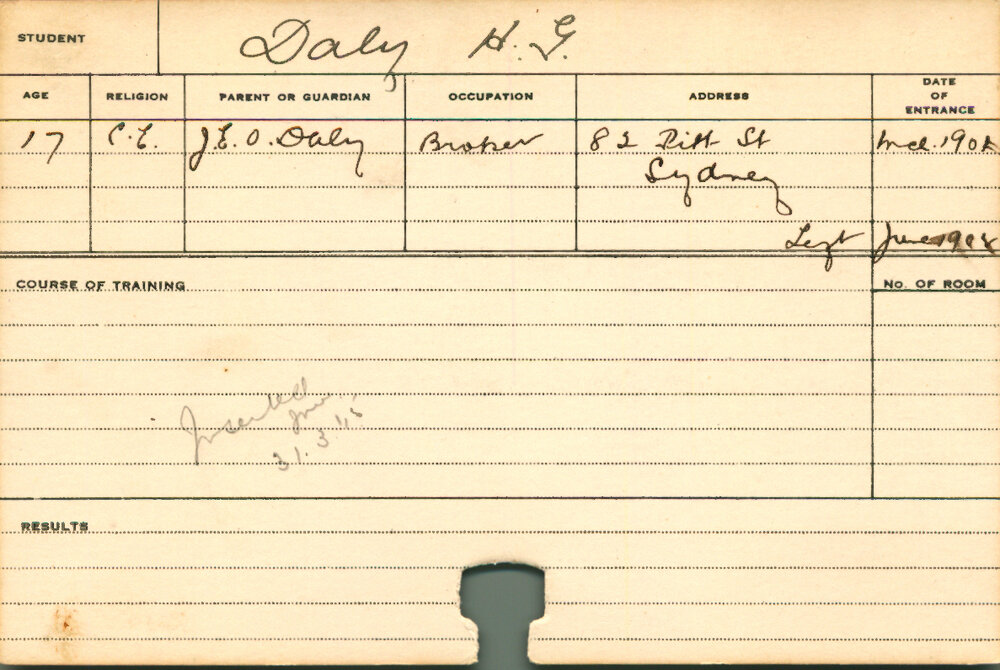 STUDENT Daly H. G.
AGE RELIGION PARENT OR GUARDIAN OCCUPATION ADDRESS DATE OF ENTRANCE
17 C.E. J.E.O. Daly Broker 82 Pitt St Mch. 1902
Sydney
Left June
COURSE OF TRAINING NO. OF ROOM
Inserted
31.3.
RESULTS